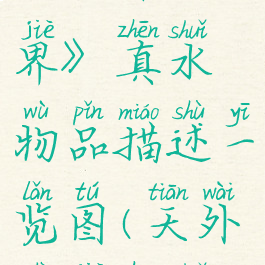 jiè zhēn shuǐ
界》真水
wù pǐn miáo shù yī
物品描述一
lǎn tú tiān wài
览图(天外